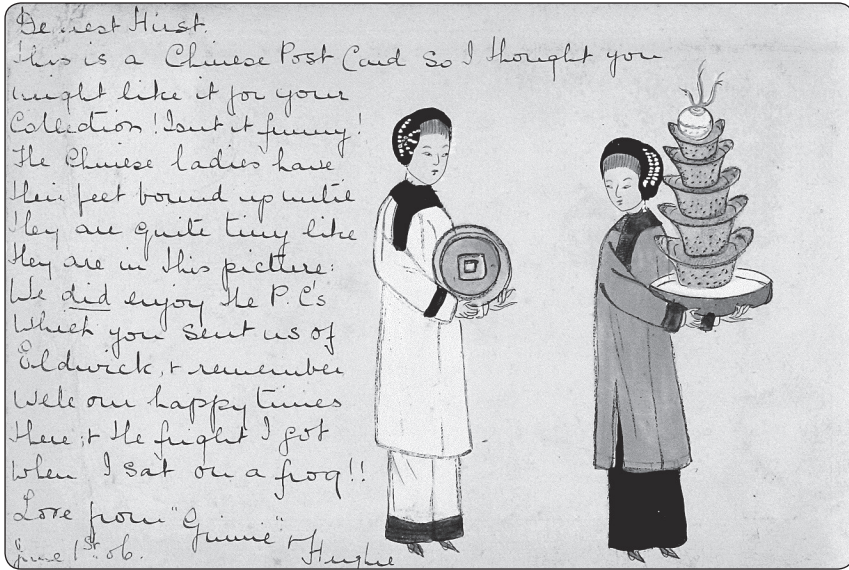 Dearest Hirst.
This is a Chinese Post Card so I thought you
might like it for your
Collection! Isnt it funny!
The Chinese ladies have
their feet bound up until
they are quite tiny like
they are in this picture:
We did enjoy the P.C's
which you sent us of
Eldwick, & remember
well our happy times
there, & the fright I got
when I sat on a frog!!
Love from "Ginnie" &
Hughie
June 1st 06.